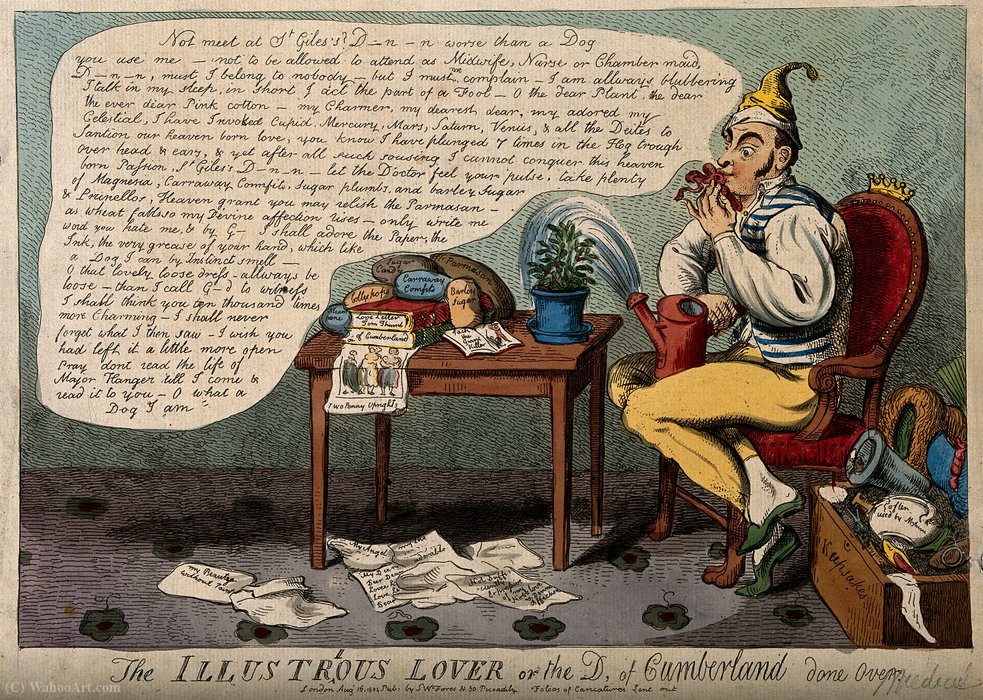 Not meet at St Giles's? D–n – n worse than a Dog
you use me – not to be allowed to attend as Midwife, Nurse or Chamber maid,
D–n–n, must I belong to nobody – but I must complain – I am allways blubbering
I talk in my sleep, in short I act the part of a Fool – O the dear Plant. the dear
the ever diar Pink cotton – my Charmer, my dearest dear, my adored my
Celestial, I have Invoked Cupid, Mercury, Mars, Saturn, Venus, & all the Deites to
Santion our heaven born love, you know I have plunged 7 times in the Hog trough
over head & ears, & yet after all such sousing I cannot conquer this heaven
born Passion, St Giles's D–n–n – let the Doctor feel your pulse, take plenty
of Magnesia, Carraway Comfits, Sugar plumbs, and barley Sugar
& Prunellos, Heaven grant you may relish the Parmasan –
as wheat falls so my Devine affection rises – only write me
word you hate me, & by G– I shall adore the Paper, the
Ink, the very grease of your hand, which like
a Dog I can by Instinct smell –
O that lovely loose dress – allways be
loose – than I call G–d to witness
I shall think you ten thousand times
mor Charming – I shall never
forget what I then saw – I wish you
had left it a little more open
Pray dont read the life of
Major Hanger till I come &
read it to you – O what a
Dog I am –
Sugar Candy
Parmasan
Carraway Comfits
Lollypops
Barley Sugar
Love Letter
Tom Thumb
of Cumberland
Two Penny Uprights
my Angel
my Beauty
without
Keepsakes
often used by
The ILLUSTROUS LOVER or the D, of Cumberland done Over
London Aug 16. Pub: by SW Fores N. 50 Piccadilly Folios of Caricatures Lent out
(C) WahooArt.com